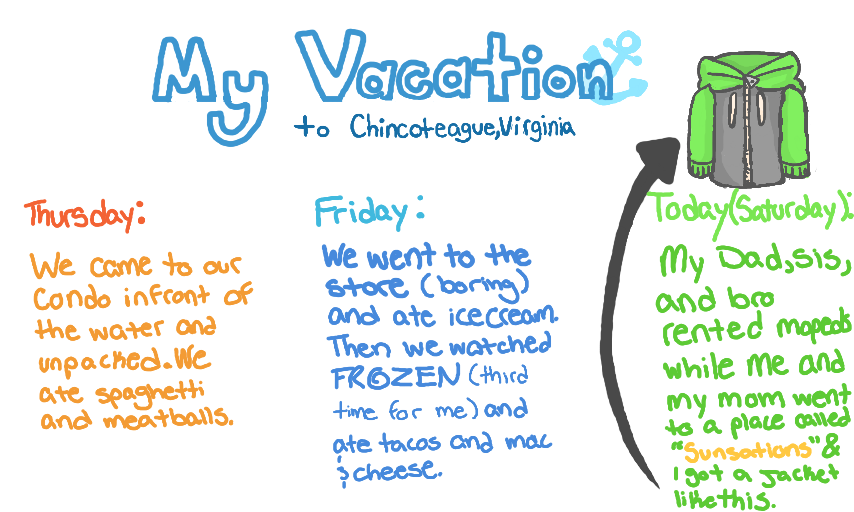 My Vacation
to Chincoteague, Virginia
Thursday:
We came to our
Condo infront of
the water and
unpacked. We
ate spaghetti
and meatballs.
Friday:
We went to the
store (boring)
and ate icecream.
Then we watched
FROZEN (third
time for me) and
ate tacos and mac
& cheese.
Today(Saturday):
My Dad, sis,
and bro
rented mopeds
while me and
my mom went
to a place called
"Sunsations" &
I got a jacket
like this.